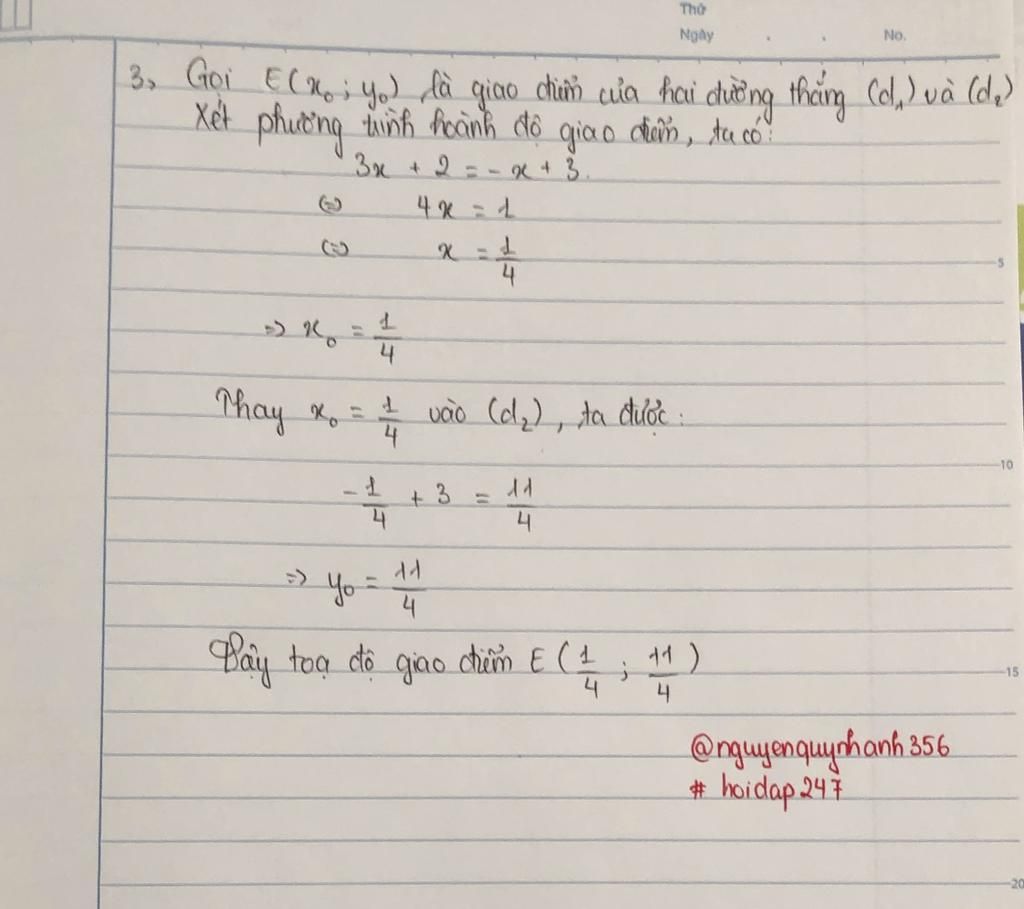 Thứ
Ngày . . No.
3, Gọi E(x₀; y₀) là giao điểm của hai đường thẳng (d₁) và (d₂)
Xét phương trình hoành độ giao điểm, ta có:
3x + 2 = - x + 3.
⇔ 4x = 1
⇔ x = 1/4
5
⇒ x₀ = 1/4
Thay x₀ = 1/4 vào (d₂), ta được:
10
-1/4 + 3 = 11/4
⇒ y₀ = 11/4
Vậy toạ độ giao điểm E(1/4; 11/4)
15
@nguyenquynhanh356
# hoidap247
20